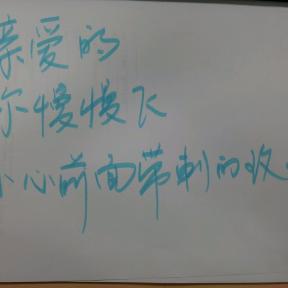 亲爱的
你慢慢飞
小心前面带刺的玫